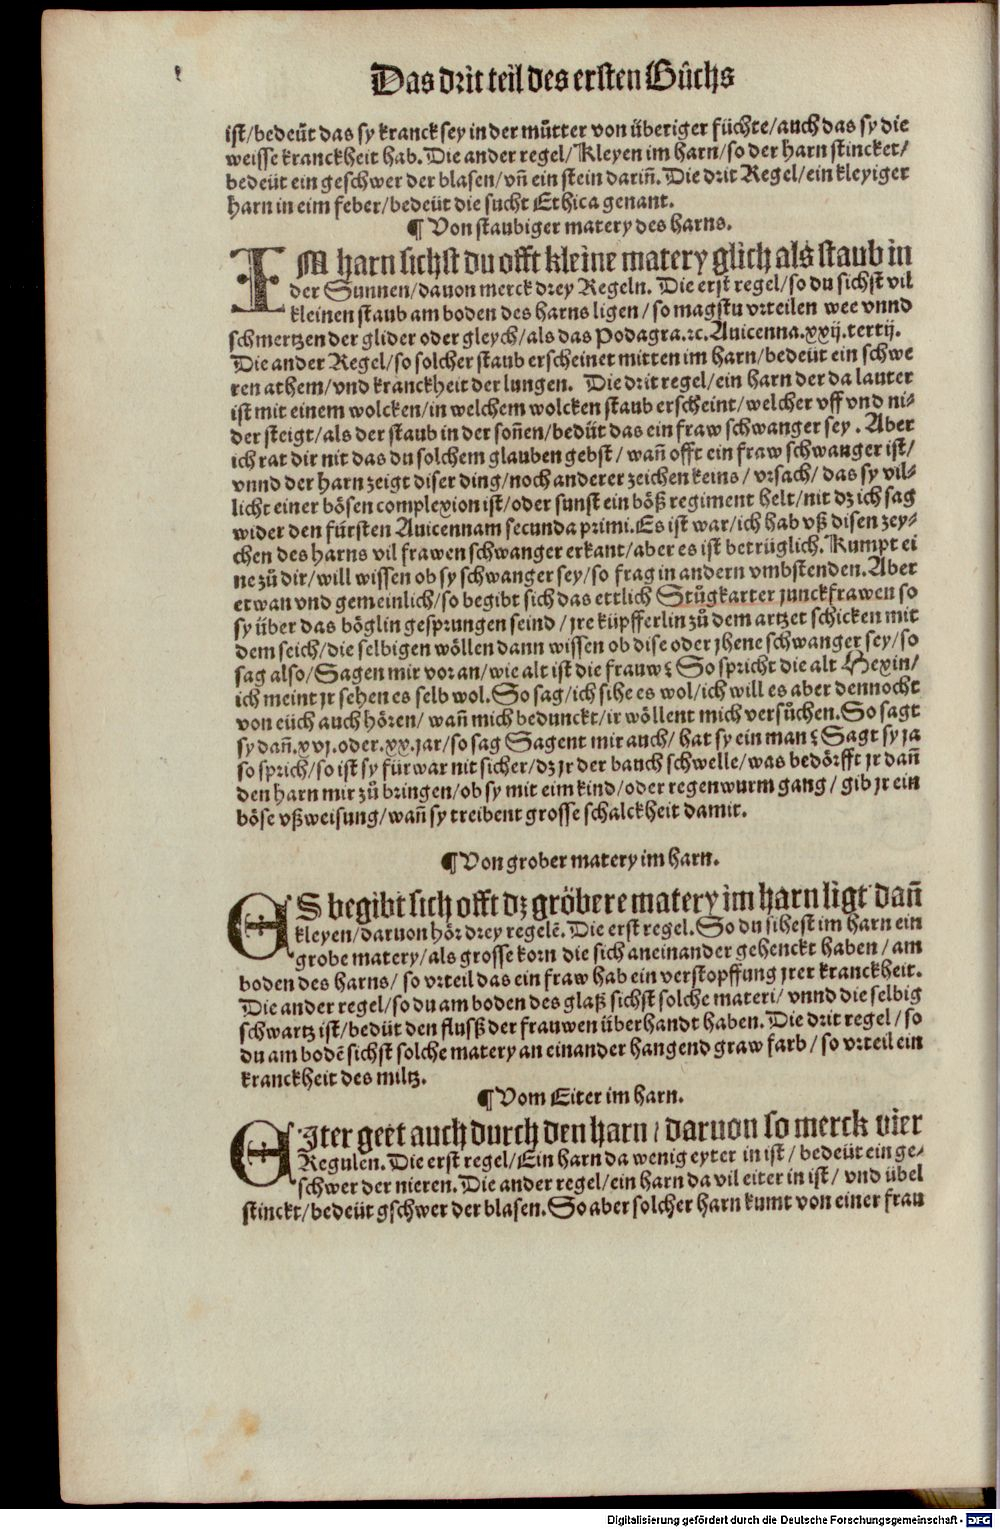 Das drit teil des ersten Bůchs
ist/bedeüt das sy kranck sey in der můtter von überiger füchte/auch das sy die
weisse kranckheit hab. Die ander regel/Kleyen im harn/so der harn stincket/
bedeüt ein geschwer der blasen/vñ ein stein dariñ. Die drit Regel/ein kleyiger
harn in eim feber/bedeüt die sucht Ethica genant.
¶ Von staubiger matery des harns.
IM harn sichst du offt kleine matery glich als staub in
der Sunnen/dauon merck drey Regeln. Die erst regel/so du sichst vil
kleinen staub am boden des harns ligen/so magstu vrteilen wee vnnd
schmertzen der glider oder gleych/als das Podagra.ꝛc.Auicenna.xxij.tertij.
Die ander Regel/so solcher staub erscheinet mitten im harn/bedeüt ein schwe
ren athem/vnd kranckheit der lungen. Die drit regel/ein harn der da lauter
ist mit einem wolcken/in welchem wolcken staub erscheint/welcher vff vnd ni-
der steigt/als der staub in der soñen/bedüt das ein fraw schwanger sey. Aber
ich rat dir nit das du solchem glauben gebst/wañ offt ein fraw schwanger ist/
vnnd der harn zeigt diser ding/noch anderer zeichen keins/vrsach/das sy vil-
licht einer bösen complexion ist/oder sunst ein böß regiment helt/nit dz ich sag
wider den fürsten Auicennam secunda primi. Es ist war/ich hab vß disen zey-
chen des harns vil frawen schwanger erkant/aber es ist betrüglich. Kumpt ei
ne zů dir/will wissen ob sy schwanger sey/so frag in andern vmbstenden. Aber
etwan vnd gemeinlich/so begibt sich das ettlich Stůgkarter junckfrawen so
sy über das böglin gesprungen seind/jre küpfferlin zů dem artzet schicken mit
dem seich/die selbigen wöllen dann wissen ob dise oder jhene schwanger sey/so
sag also/Sagen mir voran/wie alt ist die frauw? So spricht die alt Hexin/
ich meint jr sehen es selb wol. So sag/ich sihe es wol/ich will es aber dennocht
von eüch auch hören/wañ mich bedunckt/ir wöllent mich versůchen. So sagt
sy dañ.xvj.oder.xx.jar/so sag Sagent mir auch/hat sy ein man? Sagt sy ja
so sprich/so ist sy fürwar nit sicher/dz jr der bauch schwelle/was bedörfft jr dañ
den harn mir zů bringen/ob sy mit eim kind/oder regenwurm gang/gib jr ein
böse vßweisung/wañ sy treibent grosse schalckheit damit.
¶ Von grober matery im harn.
ES begibt sich offt dz gröbere matery im harn ligt dañ
kleyen/daruon hör drey regelẽ. Die erst regel. So du sihest im harn ein
grobe matery/als grosse korn die sich aneinander gehenckt haben/am
boden des harns/so vrteil das ein fraw hab ein verstopffung jrer kranckheit.
Die ander regel/so du am boden des glaß sichst solche materi/vnnd die selbig
schwartz ist/bedüt den flusß der frauwen überhandt haben. Die drit regel/so
du am bodẽ sichst solche matery an einander hangend graw farb/so vrteil ein
kranckheit des miltz.
¶ Vom Eiter im harn.
EIter geet auch durch den harn/daruon so merck vier
Regulen. Die erst regel/Ein harn da wenig eyter in ist/bedeüt ein ge-
schwer der nieren. Die ander regel/ein harn da vil eiter in ist/vnd übel
stinckt/bedeüt gschwer der blasen. So aber solcher harn kumt von einer frau
Digitalisierung gefördert durch die Deutsche Forschungsgemeinschaft - DFG